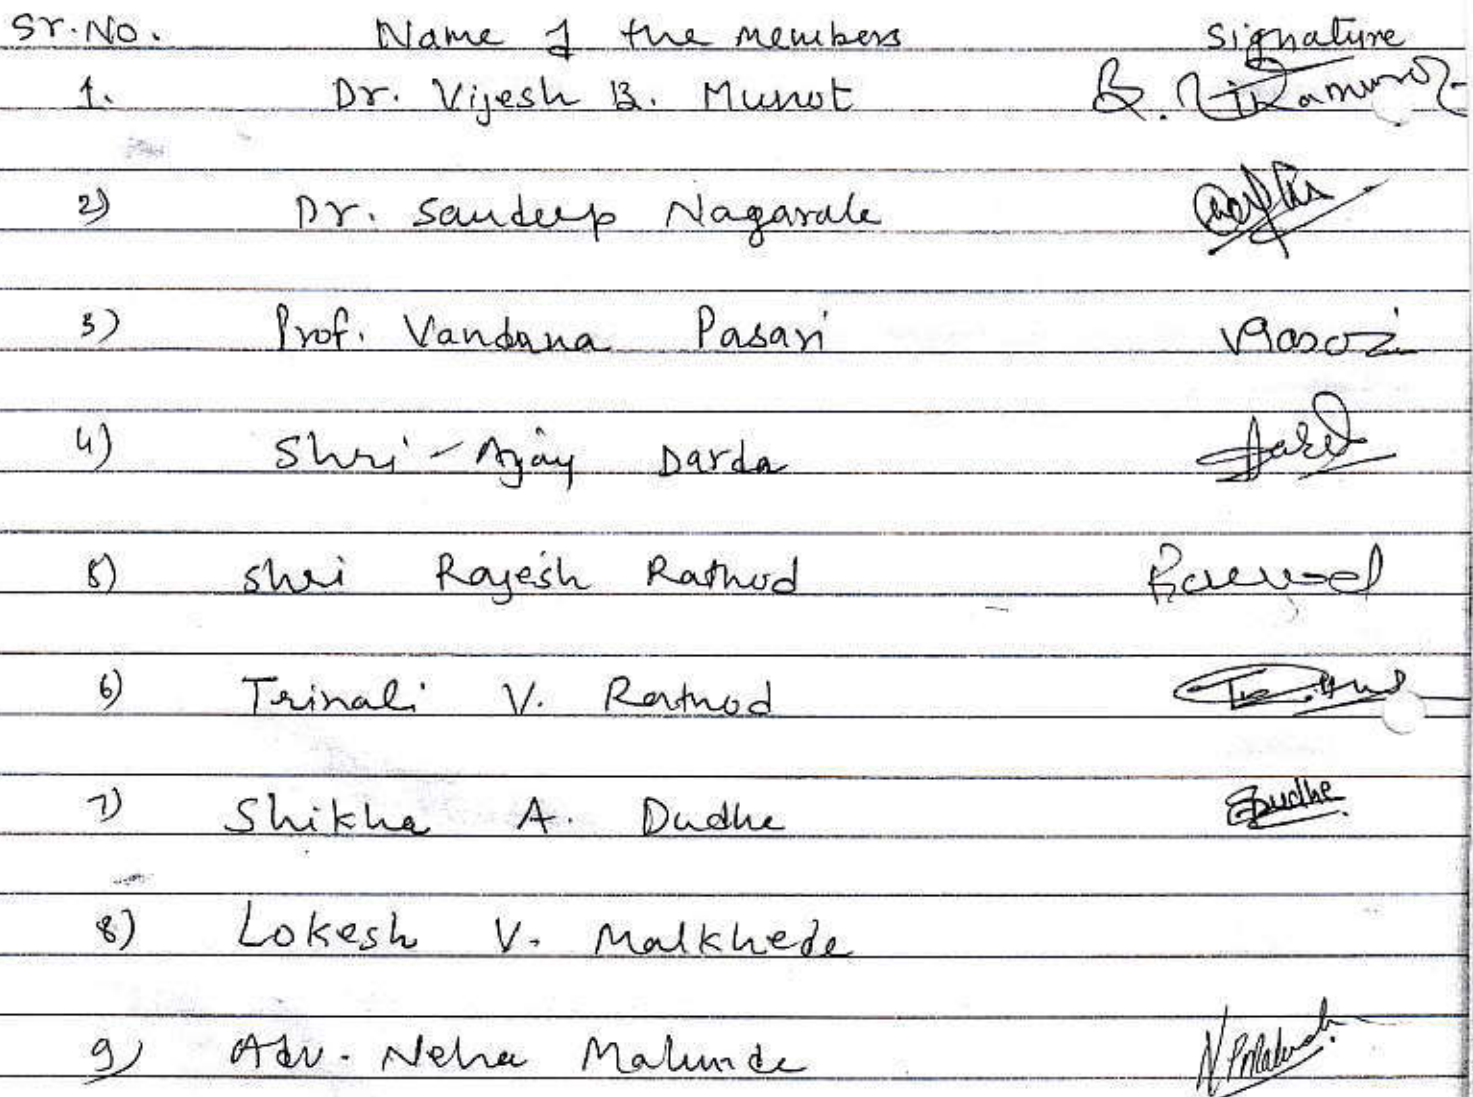 Sr.No. Name of the members Signature
1. Dr. Vijesh B. Munot
2) Dr. Sandeep Nagarale
3) Prof. Vandana Pasari
4) Shri - Ajay Darda
5) Shri Rajesh Rathod
6) Trinali V. Rathod
7) Shikha A. Dudhe Dudhe
8) Lokesh V. Malkhede
9) Adv. Neha